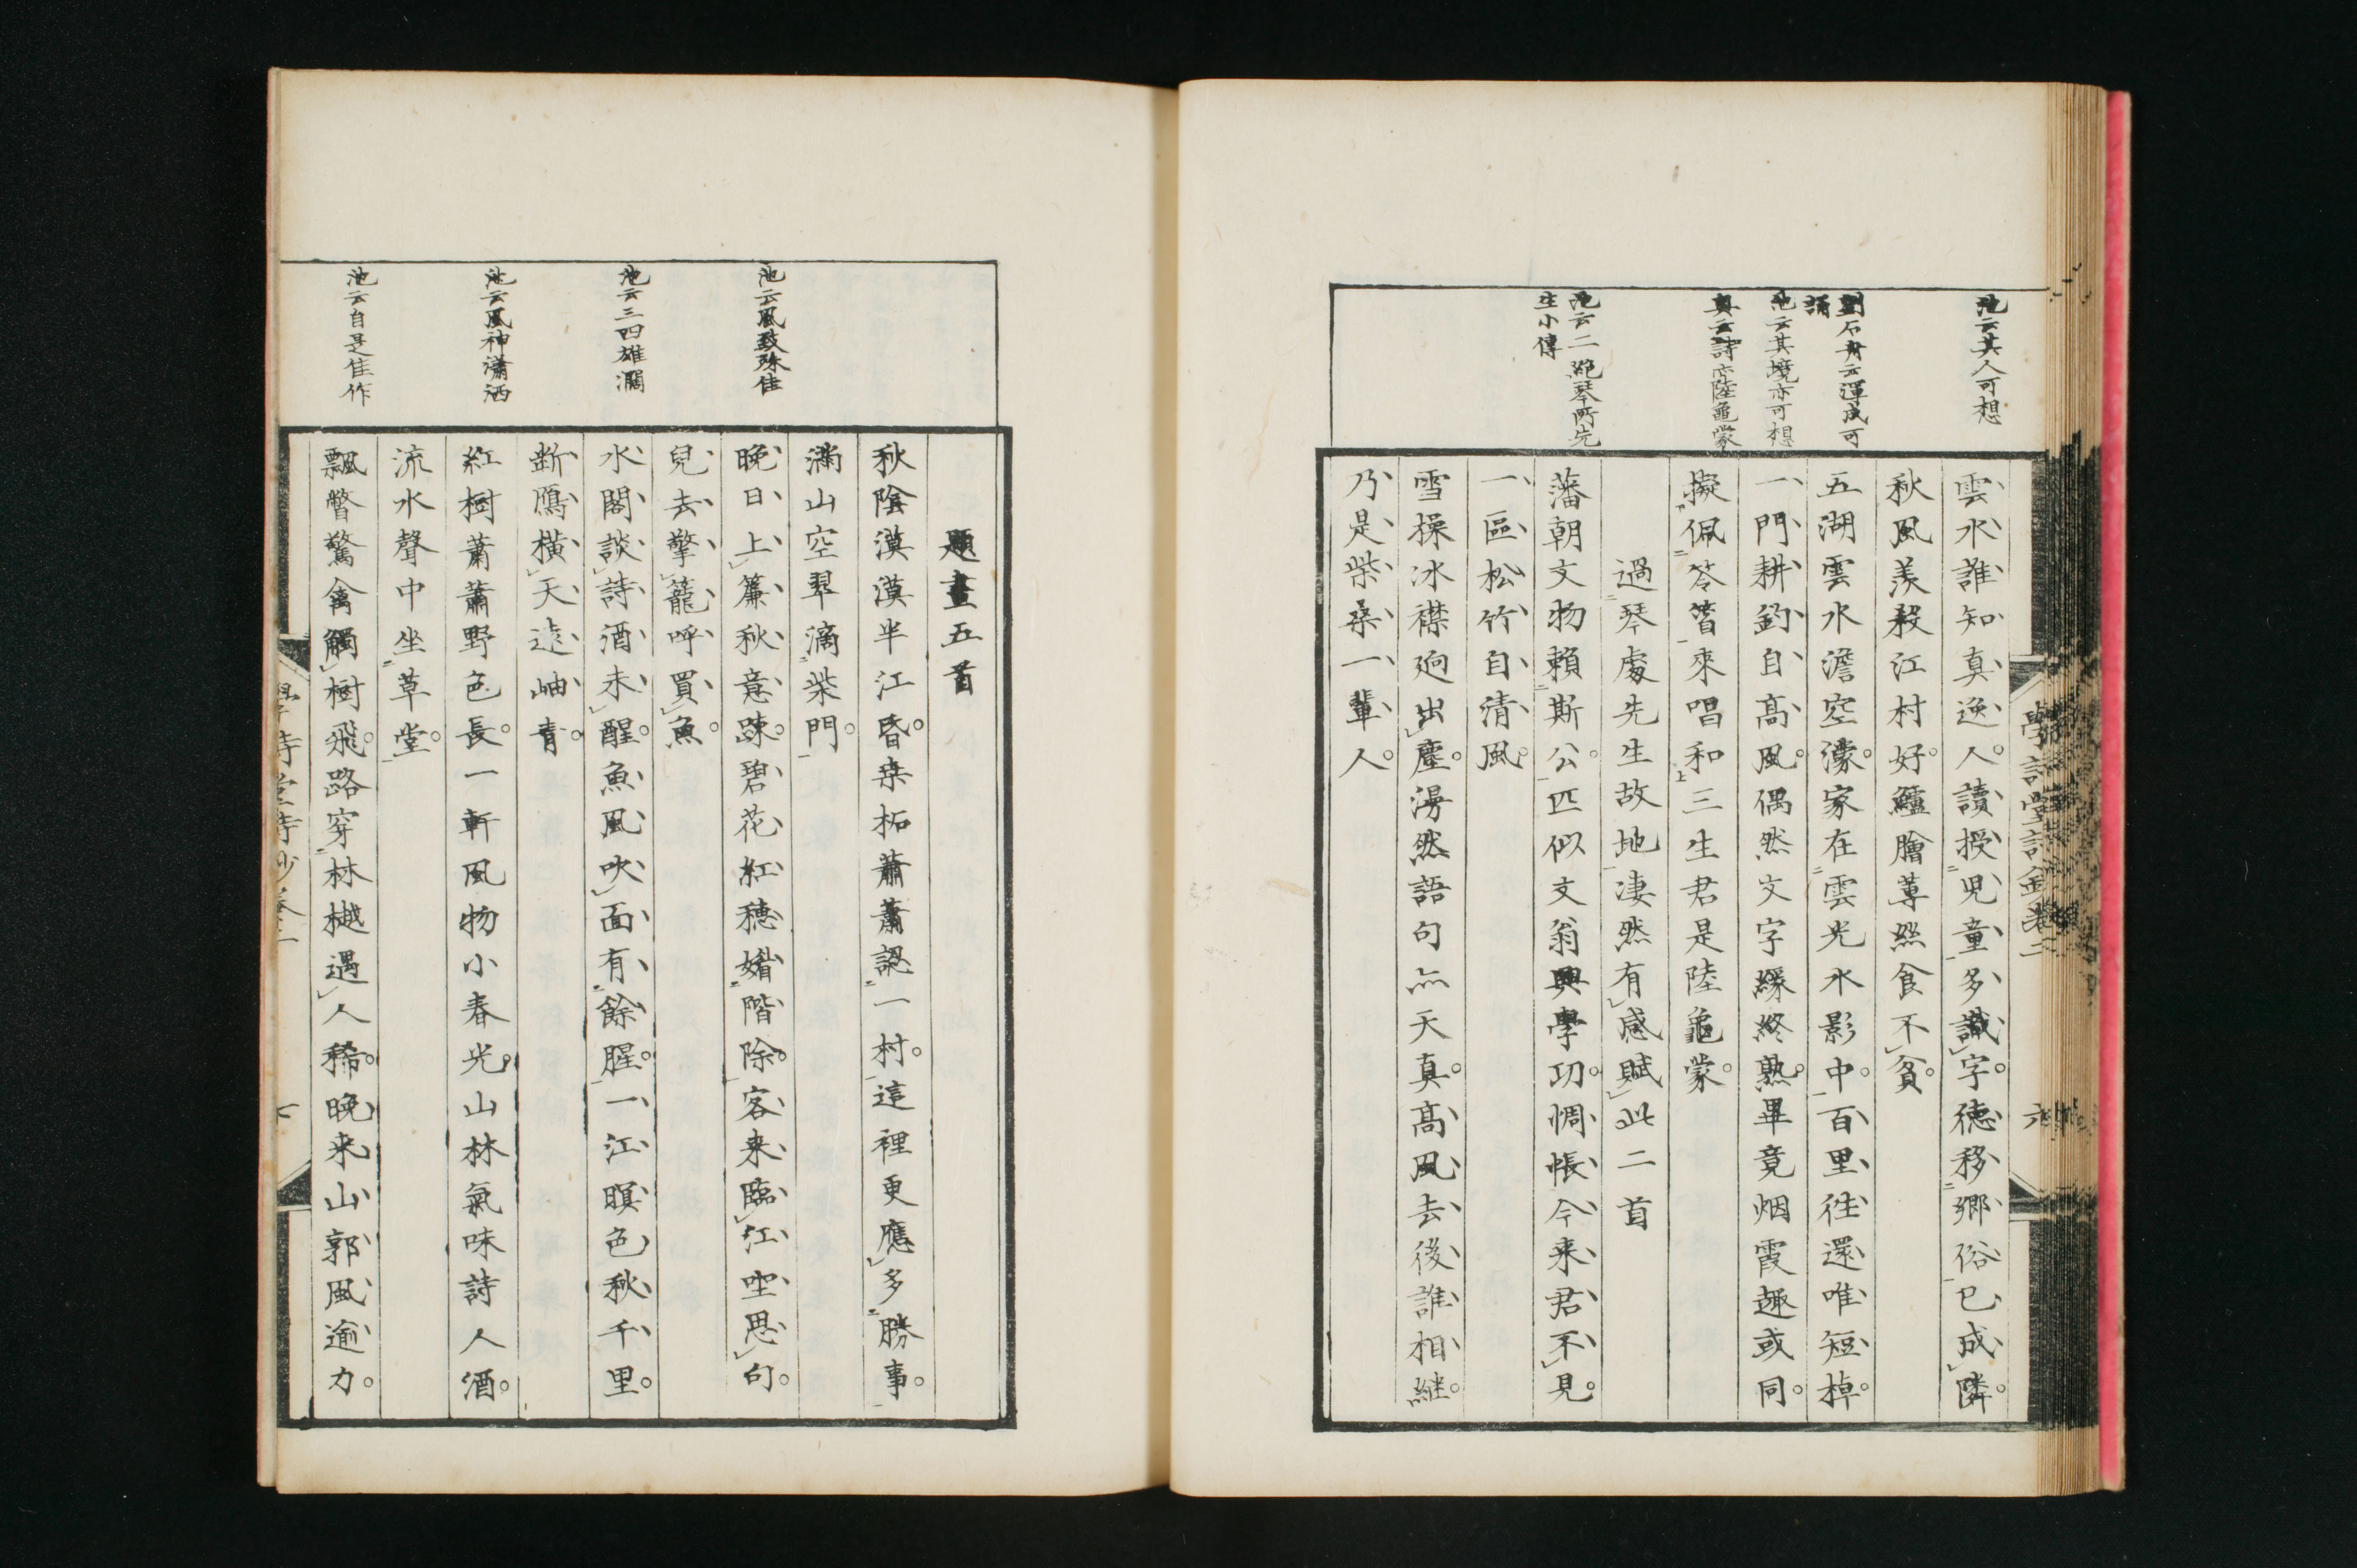 池云其人可想
劉石舟云渾成可
誦
池云其境亦可想
奥云詩亦陸龜蒙
池云二絶琴所先
生小傳
雲水誰知真逸人讀授児童多識字德移鄉俗已成隣
秋風羨殺江村好鱸膾蓴絲食不貧
五湖雲水澹空濛家在雲光水影中百里往還唯短棹
一門耕釣自高風偶然文字緣終熟畢竟烟霞趣或同
擬佩笭箵來唱和三生君是陸龜蒙
過琴處先生故地凄然有感賦此二首
藩朝文物賴斯公匹似文翁興學功惆悵今来君不見
一區松竹自清風
雪操冰襟迥出塵漫然語句亦天真高風去後誰相継
乃是柴桑一輩人
六
池云風致殊佳
池云三四雄濶
池云風神瀟洒
池云自是佳作
題畫五首
秋陰漠漠半江昏桒柘蕭蕭認一村這裡更應多勝事
滿山空翠滴柴門
晚日上簾秋意踈碧花紅穗媚階除客来臨江坐思句
兒去擎籠呼買魚
水閣談詩酒未醒魚風吹面有餘腥一江暝色秋千里
断鴈横天遠岫青
紅樹蕭蕭野色長一軒風物小春光山林氣味詩人酒
流水聲中坐草堂
飄瞥驚禽觸樹飛路穿林樾遇人稀晚来山郭風逾力